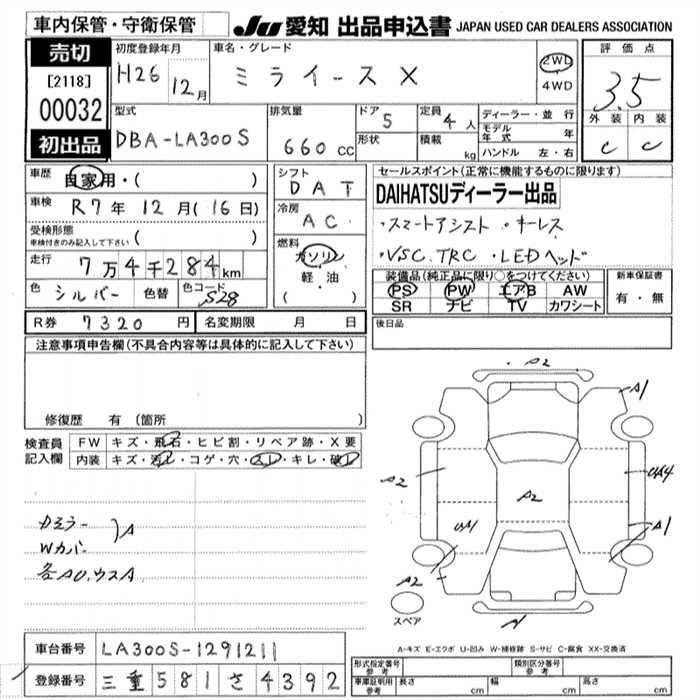 車内保管・守衛保管
JU 愛知 出品申込書 JAPAN USED CAR DEALERS ASSOCIATION
売切
[2118]
00032
初出品
初度登録年月 車名・グレード
H26 12月 ミライース X
2WD
4WD
評価点
3.5
外装 内装
C C
型式 排気量 ドア 定員 ディーラー・並行
DBA-LA300S 660cc 5 4人
形状 積載 kg
モデル年式 年
ハンドル 左・右
車歴 自家用・( )
車検 R7年12月(16日)
受検形態
車検付きのみ記入して下さい ( )
走行 7万4千284km
色 シルバー 色替 色コード S28
シフト
DAT
冷房
AC
燃料
ガソリン
軽・油
( )
セールスポイント(正常に機能するものに限ります)
DAIHATSUディーラー出品
・スマートアシスト ・キーレス
・VSC.TRC ・LEDヘッド
装備品(純正品に限り○をつけてください) 新車保証書
PS PW エアB AW 有・無
SR ナビ TV カワシート
R券 7320円 名変期限 月 日
後日品
注意事項申告欄(不具合内容等は具体的に記入して下さい)
修復歴 有 (箇所 )
検査員
記入欄
FW キズ・飛石・ヒビ割・リペア跡・X要
内装 キズ・汚レ・コゲ・穴・スレ・キレ・破レ
カミラー
Wカバー
)A
各AU.ウスA
A2
A1
A2
A2
UA4
UA1
A1
A2
スペア
A-キズ E-エクボ U-凹み W-補修跡 S-サビ C-腐食 XX-交換済
車台番号 LA300S-1291211
登録番号 三重 581 さ 4392
形式指定番号 参考 類別区分番号 参考
車庫証明用 参考 長さ cm 幅 cm 高さ cm